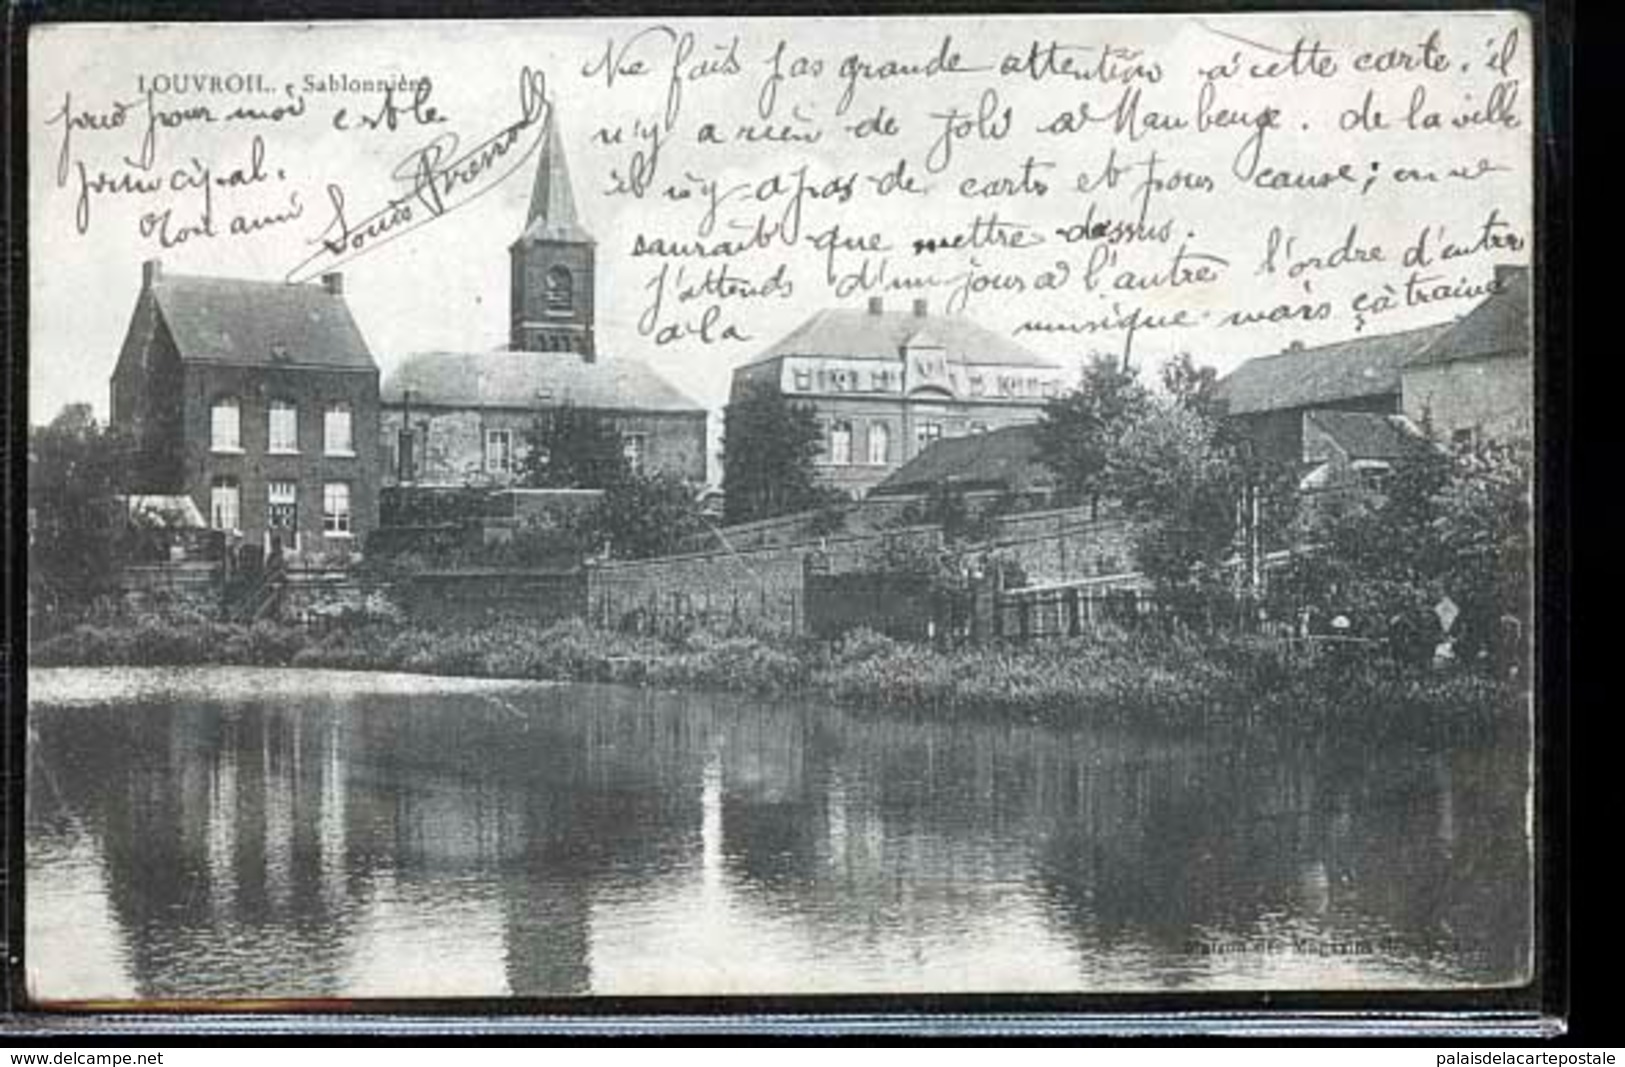 LOUVROIL. - Sablonnière
Ne fait pas grande attention à cette carte. il
n'y a rien de joli à Maubeuge. de la ville
il n'y a pas de carte et pour cause; on ne
saurait que mettre dessus.
J'attends d'un jour à l'autre l'ordre d'entrer
à la musique mais çà traine
pour moi est le
principal.
Ton ami Louis
Maison des Magasins
www.delcampe.net
palaisdelacartepostale